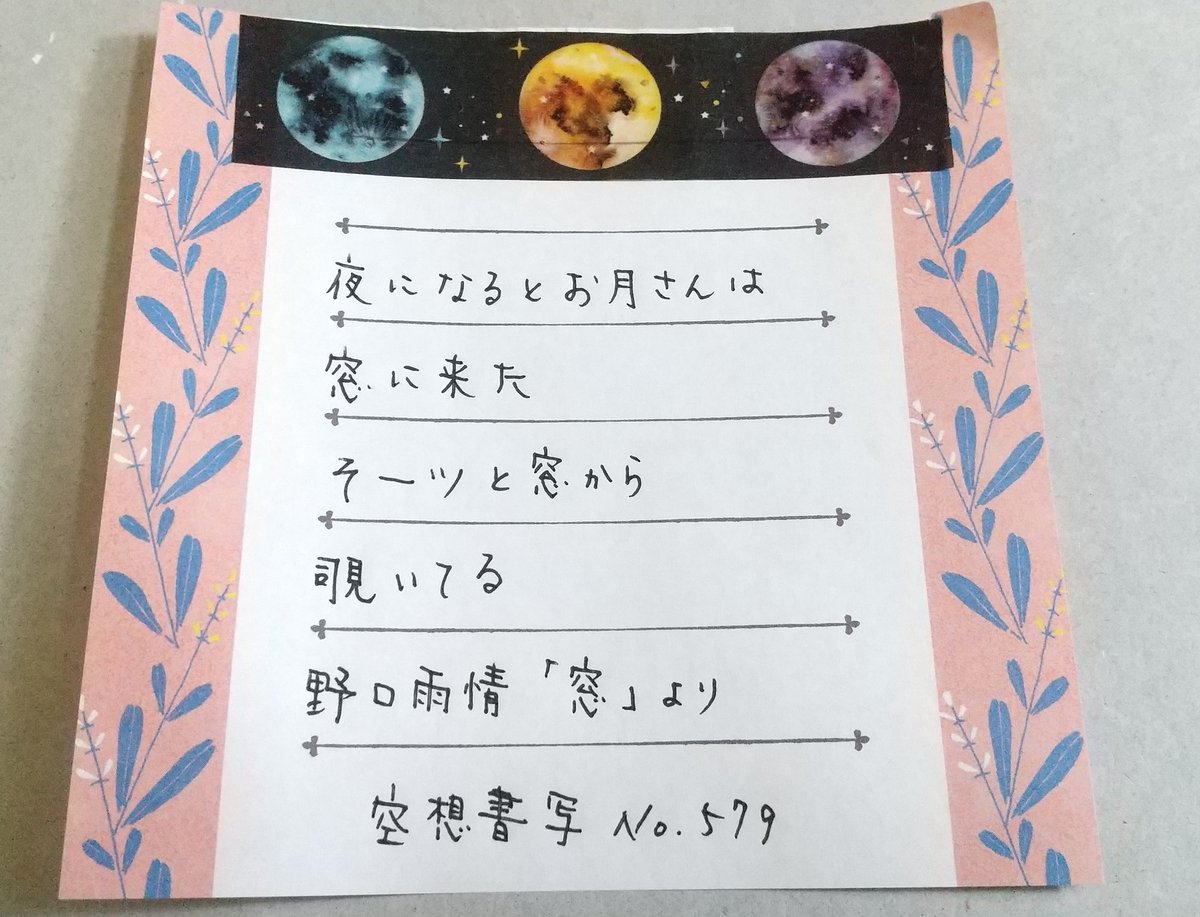 夜になるとお月さんは
窓に来た
そーツと窓から
覗いてる
野口雨情「窓」より
空想書写 No.579